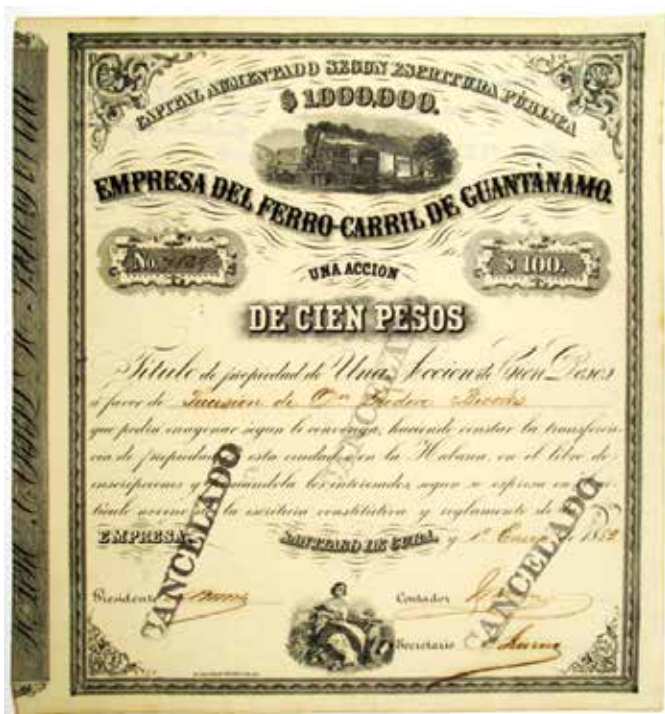 CAPITAL AUMENTADO SEGUN ESCRITURA PÚBLICA
$ 1.000.000.
EMPRESA DEL FERRO-CARRIL DE GUANTÁNAMO.
No.
$ 100.
UNA ACCION
DE CIEN PESOS
Título de propiedad de Una Accion de Cien Pesos
á favor de de
que podrá enagenar segun le convenga, haciendo constar la transferen-
cia de propiedad esta ciudad en la Habana, en el libro de
inscripciones y los interesados, segun se espresa en
la escritura constitutiva y reglamento de
EMPRESA.
SANTIAGO DE CUBA, y 1º Enero de 18
Presidente
Contador
Secretario
CANCELADO
CANCELADO
CANCELADO